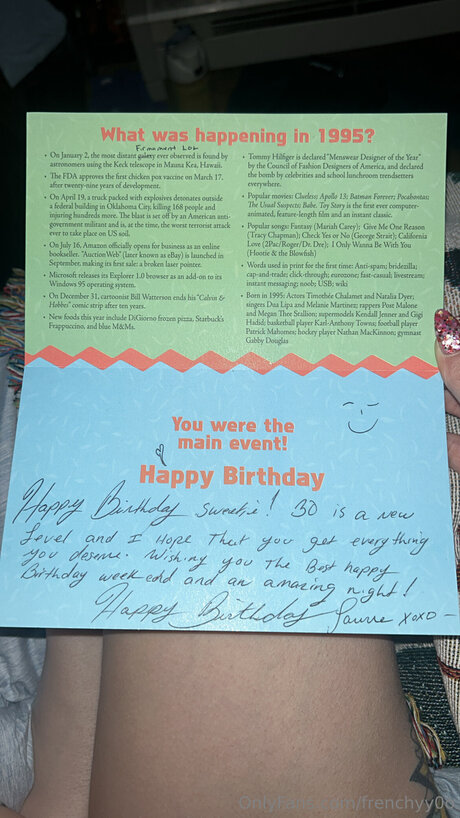 What was happening in 1995?
• On January 2, the most distant galaxy ever observed is found by
astronomers using the Keck telescope in Mauna Kea, Hawaii.
• The FDA approves the first chicken pox vaccine on March 17,
after twenty-nine years of development.
• On April 19, a truck packed with explosives detonates outside
a federal building in Oklahoma City, killing 168 people and
injuring hundreds more. The blast is set off by an American anti-
government militant and is, at the time, the worst terrorist attack
ever to take place on US soil.
• On July 16, Amazon officially opens for business as an online
bookseller. "AuctionWeb" (later known as eBay) is launched in
September, making its first sale: a broken laser pointer.
• Microsoft releases its Explorer 1.0 browser as an add-on to its
Windows 95 operating system.
• On December 31, cartoonist Bill Watterson ends his "Calvin &
Hobbes" comic strip after ten years.
• New foods this year include DiGiorno frozen pizza, Starbuck's
Frappuccino, and blue M&Ms.
• Tommy Hilfiger is declared "Menswear Designer of the Year"
by the Council of Fashion Designers of America, and declared
the bomb by celebrities and school lunchroom trendsetters
everywhere.
• Popular movies: Clueless; Apollo 13; Batman Forever; Pocahontas;
The Usual Suspects; Babe. Toy Story is the first ever computer-
animated, feature-length film and an instant classic.
• Popular songs: Fantasy (Mariah Carey); Give Me One Reason
(Tracy Chapman); Check Yes or No (George Strait); California
Love (2Pac/Roger/Dr. Dre); I Only Wanna Be With You
(Hootie & the Blowfish)
• Words used in print for the first time: Anti-spam; bridezilla;
cap-and-trade; click-through; eurozone; fast-casual; livestream;
instant messaging; noob; USB; wiki
• Born in 1995: Actors Timothée Chalamet and Natalia Dyer;
singers Dua Lipa and Melanie Martinez; rappers Post Malone
and Megan Thee Stallion; supermodels Kendall Jenner and Gigi
Hadid; basketball player Karl-Anthony Towns; football player
Patrick Mahomes; hockey player Nathan MacKinnon; gymnast
Gabby Douglas
You were the
main event!
Happy Birthday
Happy Birthday sweetie! 30 is a new
level and I Hope That you get everything
you deserve. Wishing you The Best happy
Birthday weekend and an amazing night!
Happy Birthday xoxo -
OnlyFans.com/frenchyy0